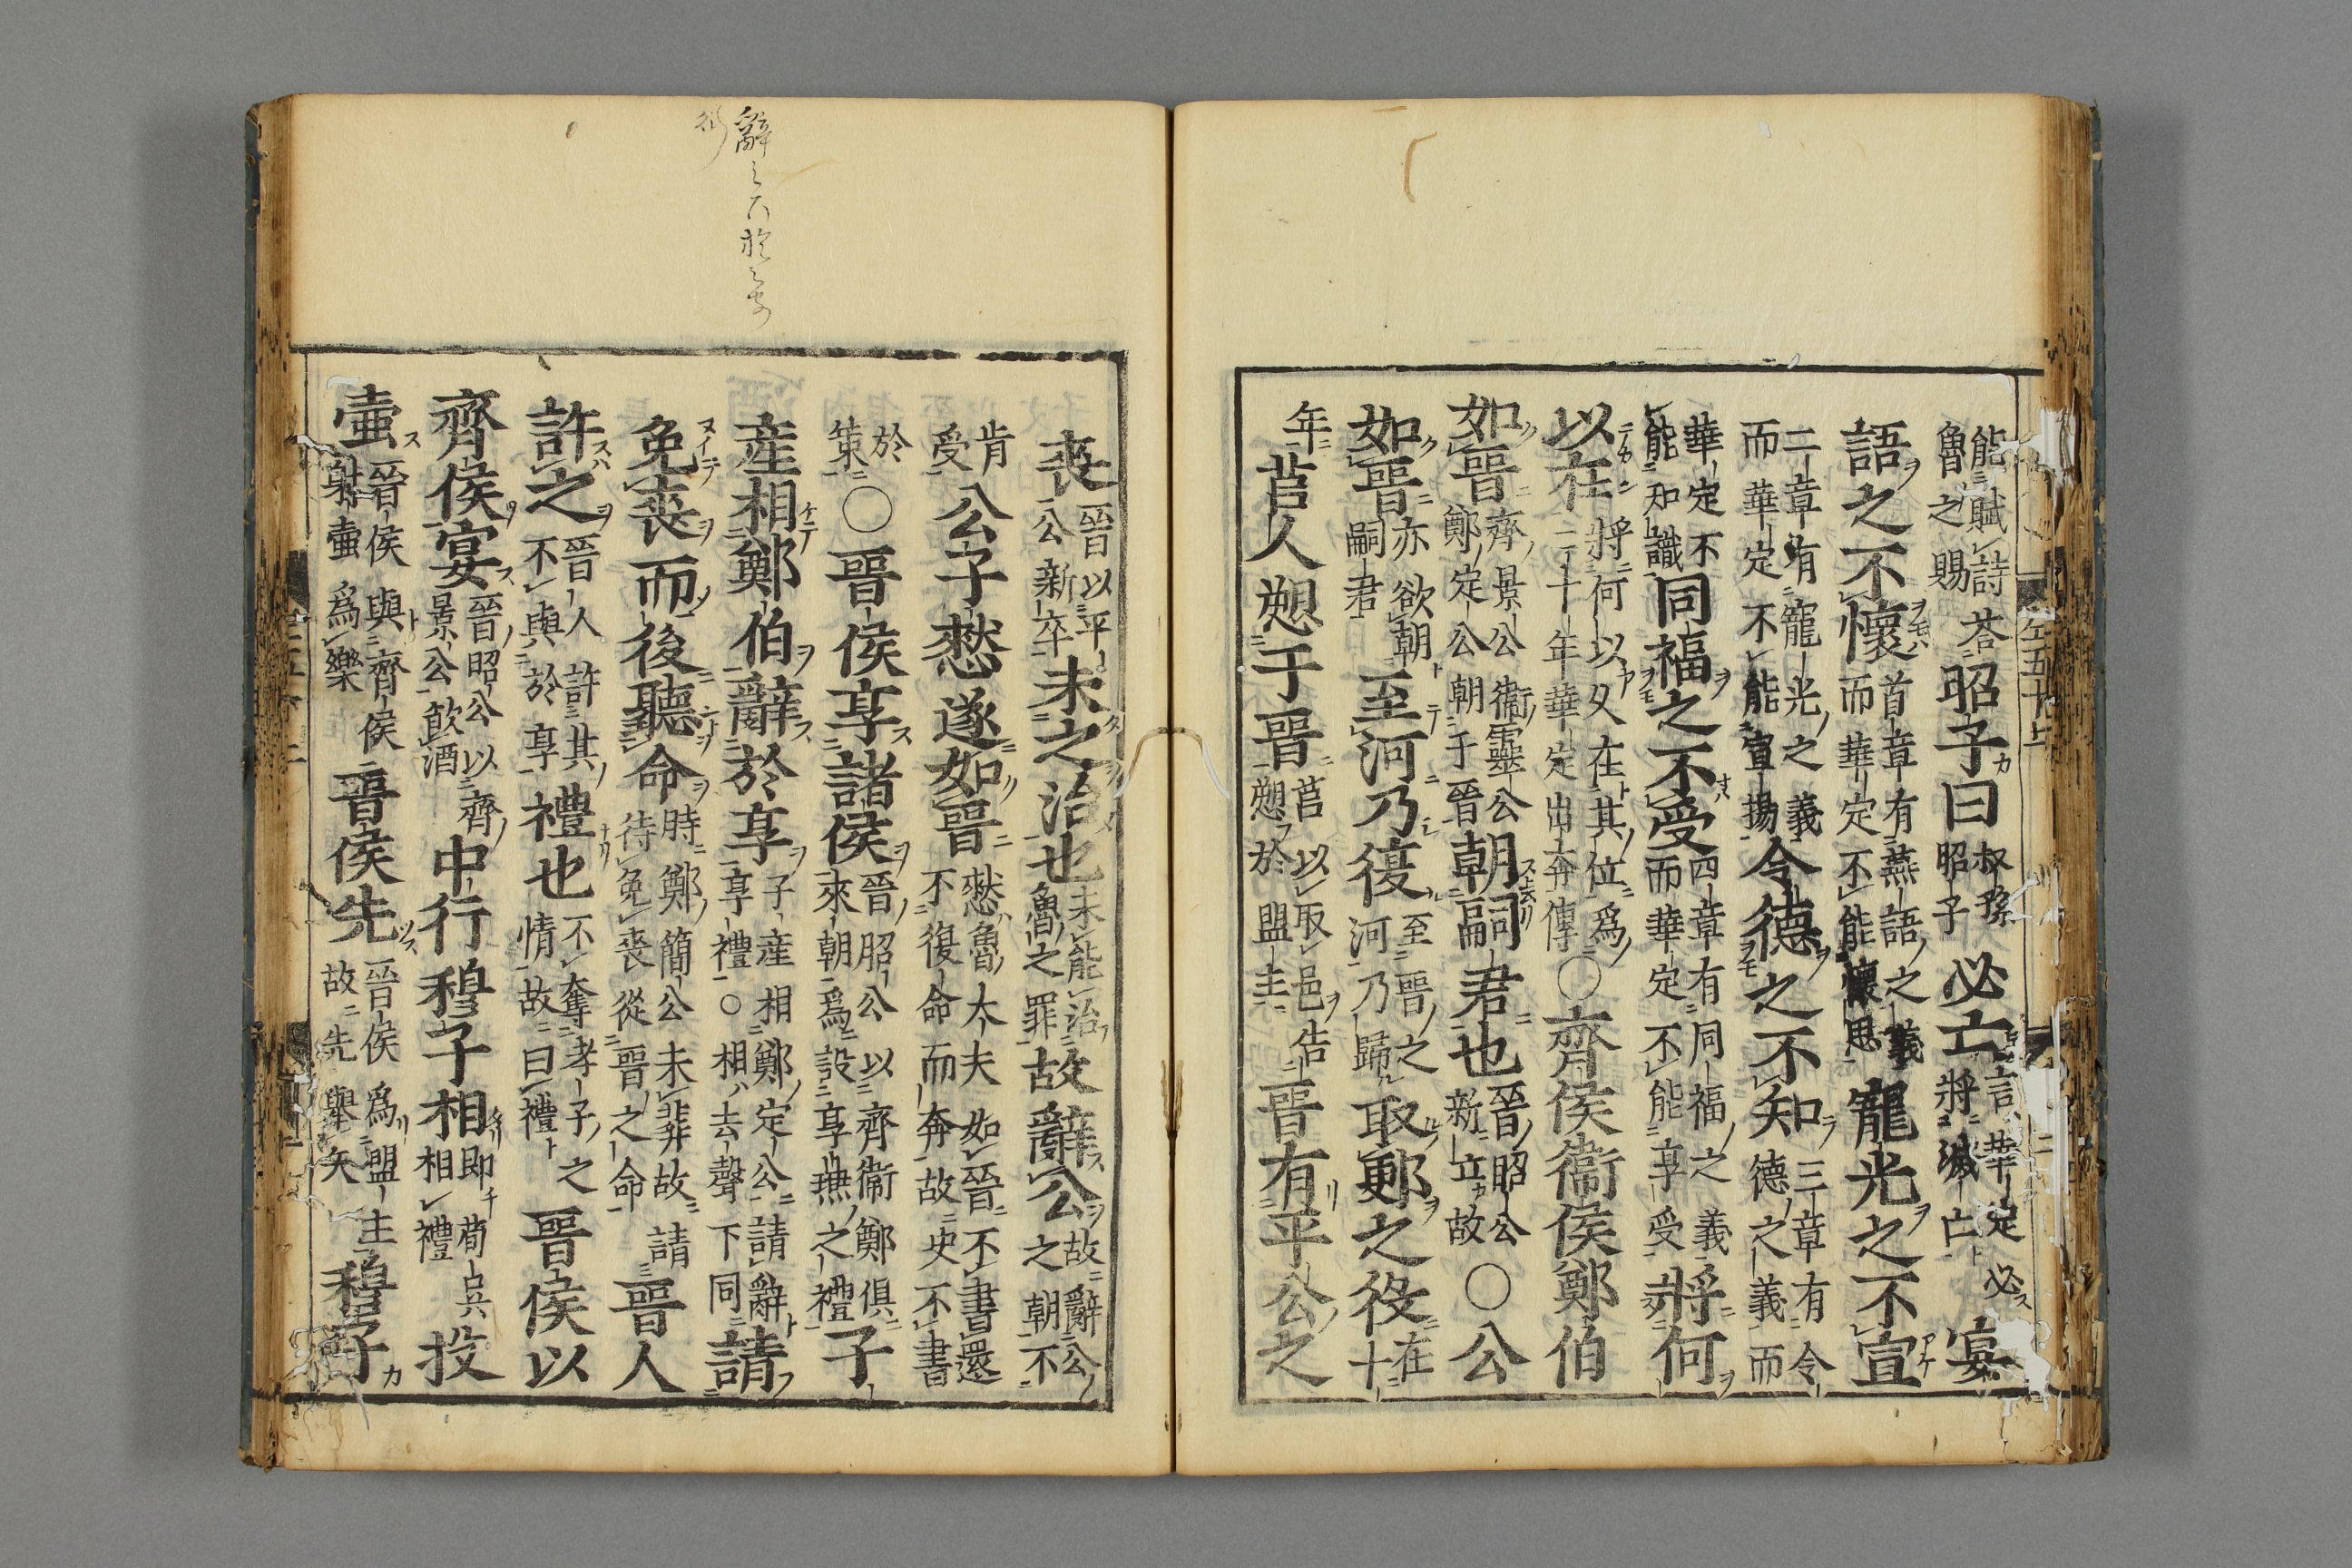 能賦詩荅魯之賜昭子曰叔孫昭子必亡言華定必將滅亡宴
語之不懷首章有燕語之義而華定不能懷思寵光之不宣
二章有寵光之義而華定不能宣揚令德之不知三章有令德之義而
華定不能知識同福之不受四章有同福之義而華定不能享受將何
以在將何以久在其位爲二十年華定出奔傳○齊侯衞侯鄭伯
如晉齊景公衞靈公鄭定公朝于晉朝嗣君也晉昭公新立故○公
如晉亦欲朝嗣君至河乃復至晉之河乃歸取郠之役在十
年莒人愬于晉莒以取邑告愬於盟主晉有平公之
喪晉以平公新卒未之治也未能治魯之罪故辭公故辭公之朝不
肯受公子憖遂如晉憖魯大夫如晉不書還不復命而奔故史不書
於策○晉侯享諸侯晉昭公以齊衞鄭俱來朝爲設享燕之禮子
産相鄭伯辭於享子産相鄭定公請辭享禮○相去聲下同請
免喪而後聽命時鄭簡公未葬故請待免喪從晉之命晉人
許之晉人許其不與於享禮也不奪孝子之情故曰禮晉侯以
齊侯宴晉昭公以齊景公飮酒中行穆子相即荀吳相禮投
壷晉侯與齊侯射壷爲樂晉侯先晉侯爲盟主故先舉矢穆子